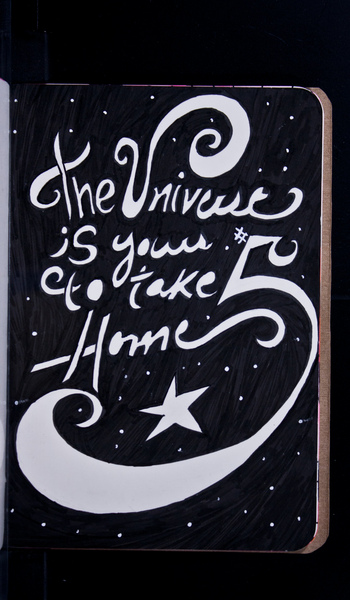 The Universe
is yours
to take
Home
#5